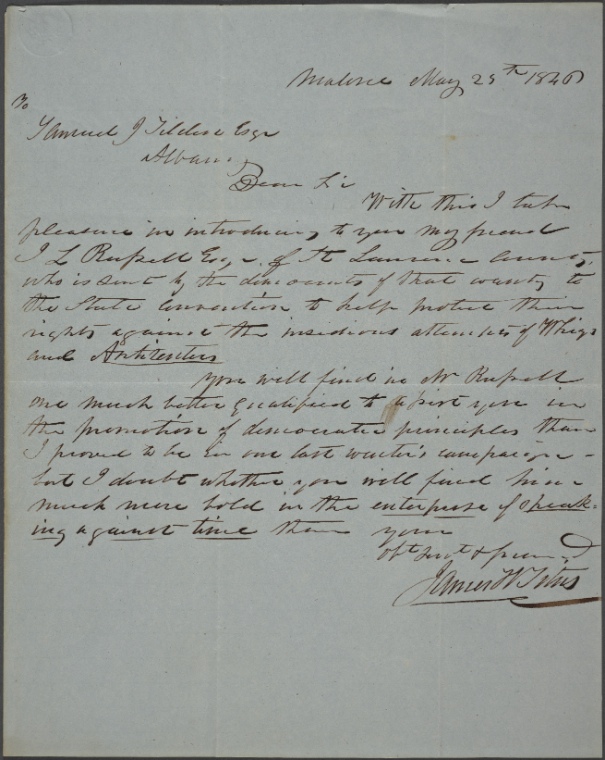 Malone May 25th 1846
To
Samuel J Tilden Esqr
Albany
Dear Sir
With this I take
pleasure in introducing to you my friend
J L Russell Esqr. of St Lawrence County,
who is sent by the democrats of that county to
the State Convention to help protect their
rights against the insidious attempts of Whigs
and Antirenters
You will find in Mr Russell
one much better qualified to assist you in
the promotion of democratic principles than
I proved to be in our last winter's campaign -
but I doubt whether you will find him
much more bold in the enterprise of speak-
ing against time than your
obt servt & friend
James W Titus